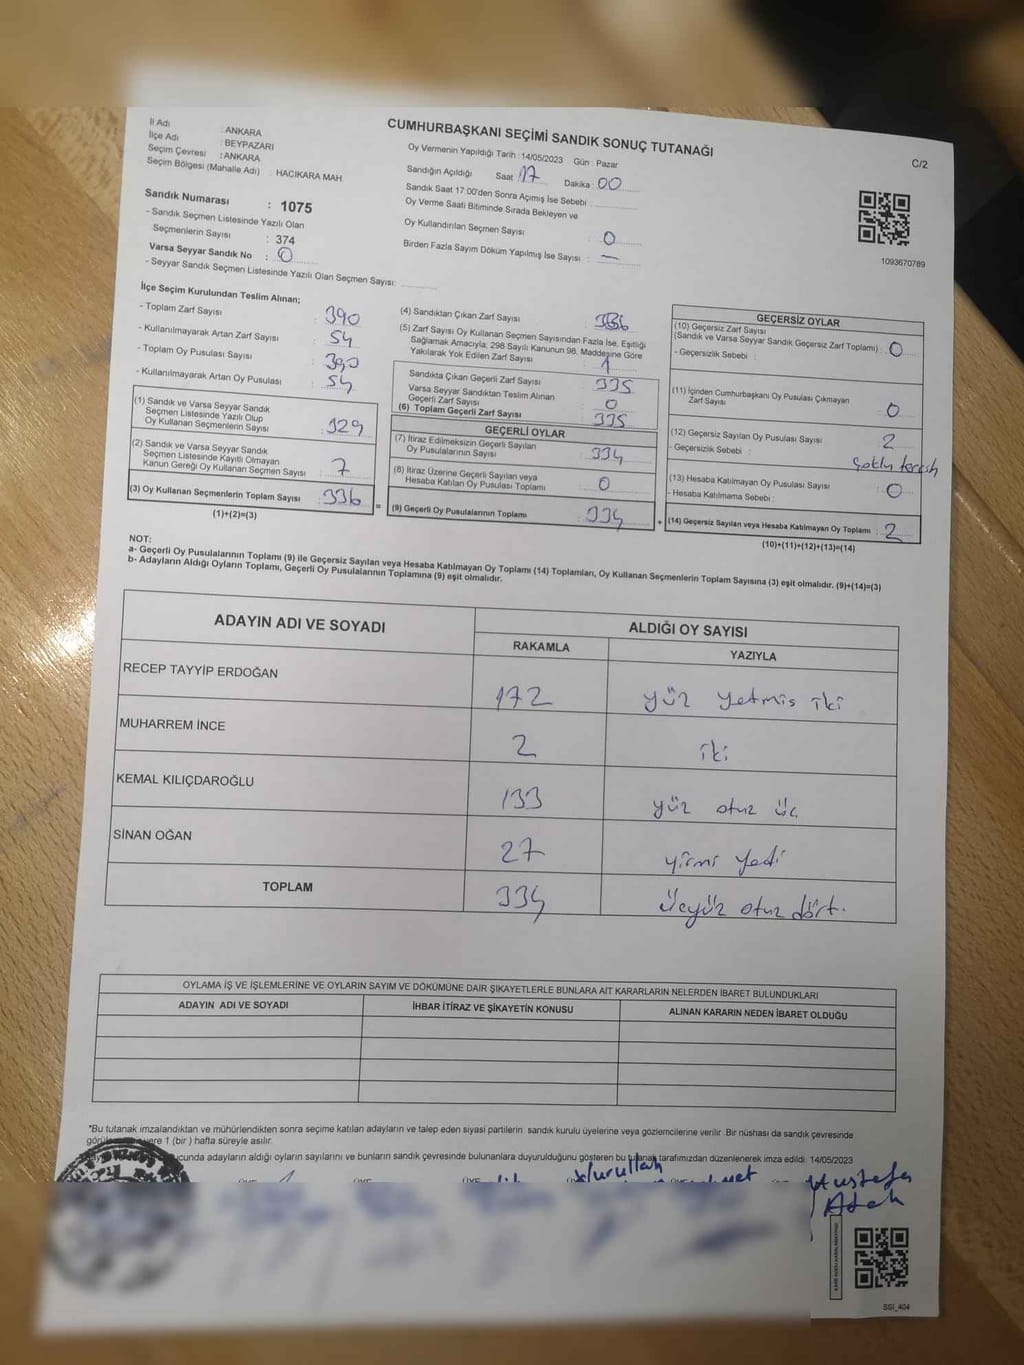 CUMHURBAŞKANI SEÇİMİ SANDIK SONUÇ TUTANAĞI
C/2
İl Adı : ANKARA
İlçe Adı : BEYPAZARI
Seçim Çevresi : ANKARA
Seçim Bölgesi (Mahalle Adı) : HACIKARA MAH.
Oy Vermenin Yapıldığı Tarih : 14/05/2023 Gün : Pazar
Sandığın Açıldığı Saat 17 Dakika : 00
Sandık Saat 17:00'den Sonra Açımış İse Sebebi :
Oy Verme Saati Bitiminde Sırada Bekleyen ve
Oy Kullandırılan Seçmen Sayısı : 0
Birden Fazla Sayım Döküm Yapılmış İse Sayısı : —
1093670769
Sandık Numarası : 1075
- Sandık Seçmen Listesinde Yazılı Olan
Seçmenlerin Sayısı : 374
Varsa Seyyar Sandık No : 0
- Seyyar Sandık Seçmen Listesinde Yazılı Olan Seçmen Sayısı:
İlçe Seçim Kurulundan Teslim Alınan;
- Toplam Zarf Sayısı : 390
- Kullanılmayarak Artan Zarf Sayısı : 54
- Toplam Oy Pusulası Sayısı : 390
- Kullanılmayarak Artan Oy Pusulası : 54
(1) Sandık ve Varsa Seyyar Sandık
Seçmen Listesinde Yazılı Olup
Oy Kullanan Seçmenlerin Sayısı : 329
(2) Sandık ve Varsa Seyyar Sandık
Seçmen Listesinde Kayıtlı Olmayan
Kanun Gereği Oy Kullanan Seçmen Sayısı : 7
(3) Oy Kullanan Seçmenlerin Toplam Sayısı : 336
(1)+(2)=(3)
(4) Sandıktan Çıkan Zarf Sayısı : 336
(5) Zarf Sayısı Oy Kullanan Seçmen Sayısından Fazla İse, Eşitliği
Sağlamak Amacıyla; 298 Sayılı Kanunun 98. Maddesine Göre
Yakılarak Yok Edilen Zarf Sayısı : 1
Sandıkta Çıkan Geçerli Zarf Sayısı : 335
Varsa Seyyar Sandıktan Teslim Alınan
Geçerli Zarf Sayısı : 0
(6) Toplam Geçerli Zarf Sayısı : 335
GEÇERLİ OYLAR
(7) İtiraz Edilmeksizin Geçerli Sayılan
Oy Pusulalarının Sayısı : 334
(8) İtiraz Üzerine Geçerli Sayılan veya
Hesaba Katılan Oy Pusulası Toplamı : 0
= (9) Geçerli Oy Pusulalarının Toplamı : 334
GEÇERSİZ OYLAR
(10) Geçersiz Zarf Sayısı
(Sandık ve Varsa Seyyar Sandık Geçersiz Zarf Toplamı) : 0
- Geçersizlik Sebebi :
(11) İçinden Cumhurbaşkanı Oy Pusulası Çıkmayan
Zarf Sayısı : 0
(12) Geçersiz Sayılan Oy Pusulası Sayısı : 2
- Geçersizlik Sebebi :
(13) Hesaba Katılmayan Oy Pusulası Sayısı : 0
- Hesaba Katılmama Sebebi :
+ (14) Geçersiz Sayılan veya Hesaba Katılmayan Oy Toplamı : 2
(10)+(11)+(12)+(13)=(14)
NOT:
a- Geçerli Oy Pusulalarının Toplamı (9) ile Geçersiz Sayılan veya Hesaba Katılmayan Oy Toplamı (14) Toplamları, Oy Kullanan Seçmenlerin Toplam Sayısına (3) eşit olmalıdır. (9)+(14)=(3)
b- Adayların Aldığı Oyların Toplamı, Geçerli Oy Pusulalarının Toplamına (9) eşit olmalıdır.
ADAYIN ADI VE SOYADI ALDIĞI OY SAYISI
RAKAMLA YAZIYLA
RECEP TAYYİP ERDOĞAN 172 yüz yetmis iki
MUHARREM İNCE 2 iki
KEMAL KILIÇDAROĞLU 133 yüz otuz üç
SİNAN OĞAN 27 yirmi yedi
TOPLAM 334 üçyüz otuz dört.
OYLAMA İŞ VE İŞLEMLERİNE VE OYLARIN SAYIM VE DÖKÜMÜNE DAİR ŞİKAYETLERLE BUNLARA AİT KARARLARIN NELERDEN İBARET BULUNDUKLARI
ADAYIN ADI VE SOYADI İHBAR İTİRAZ VE ŞİKAYETİN KONUSU ALINAN KARARIN NEDEN İBARET OLDUĞU
*Bu tutanak imzalandıktan ve mühürlendikten sonra seçime katılan adayların ve talep eden siyasi partilerin sandık kurulu üyelerine veya gözlemcilerine verilir. Bir nüshası da sandık çevresinde
yere 1 (bir) hafta süreyle asılır.
adayların aldığı oyların sayılarını ve bunların sandık çevresinde bulunanlara duyurulduğunu gösteren bu tutanak tarafımızdan düzenlenerek imza edildi. 14/05/2023
Nurullah
Mustafa
SSİ_404